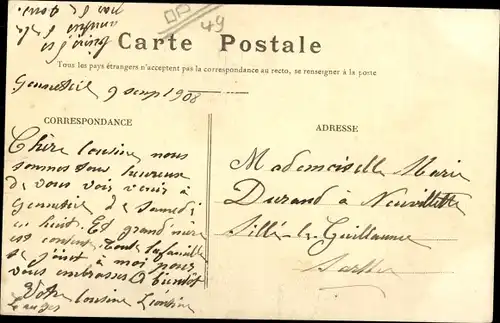 49
Carte Postale
Tous les pays étrangers n'acceptent pas la correspondance au recto, se renseigner à la poste
Genneteil 9 1908
CORRESPONDANCE
ADRESSE
Chère cousine nous
sommes tous heureuse
de vous voir venir à
Genneteil de samedi
en huit. Et grand'mère
est contente. Toute la famille
se joint à moi pour
vous embrasser. A bientôt
Votre cousine Léontine
Mademoiselle Marie
Durand à Neuvillette
Sillé-le-Guillaume
Sarthe